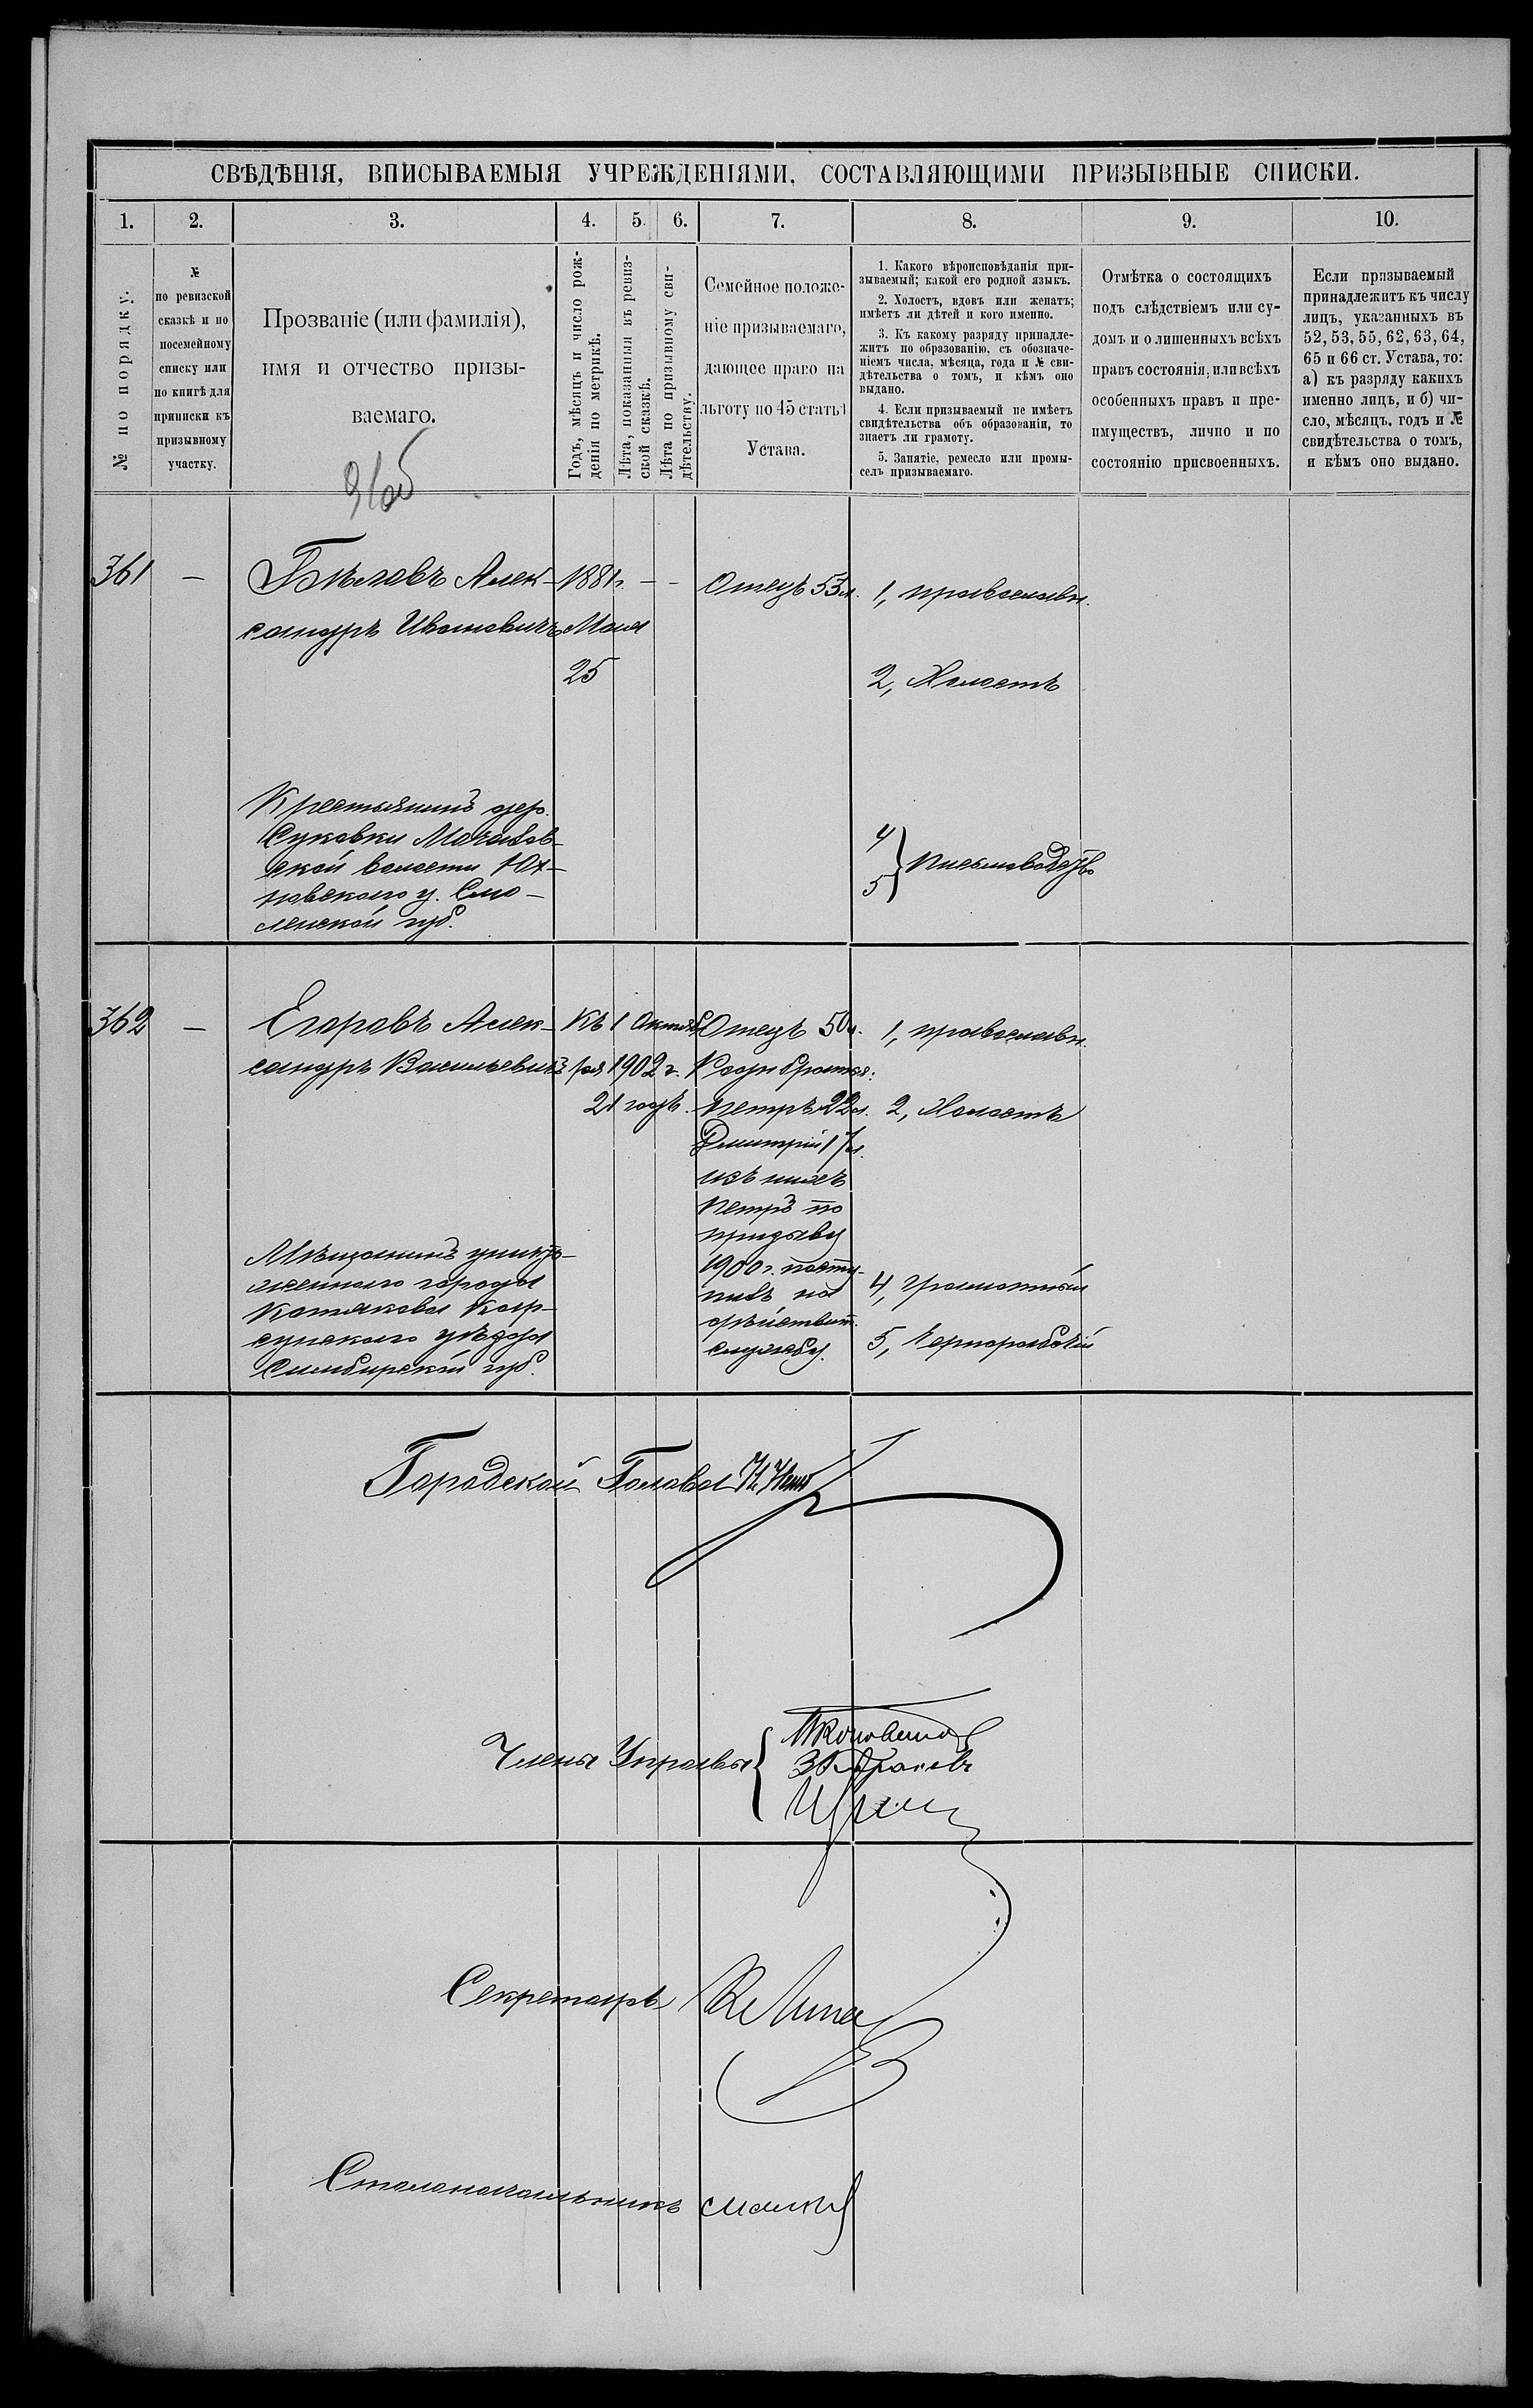 СВѢДѢНІЯ, ВПИСЫВАЕМЫЯ УЧРЕЖДЕНІЯМИ, СОСТАВЛЯЮЩИМИ ПРИЗЫВНЫЕ СПИСКИ.
1. 2. 3. 4. 5. 6. 7. 8. 9. 10.
№ по порядку.
№
по ревизской
сказкѣ и по
посемейному
списку или
по книгѣ для
приписки къ
призывному
участку.
Прозваніе (или фамилія),
имя и отчество призы-
ваемаго.
Годъ, мѣсяцъ и число рож-
денія по метрикѣ.
Лѣта, показанныя въ ревиз-
ской сказкѣ.
Лѣта по призывному сви-
дѣтельству.
Семейное положе-
ніе призываемаго,
дающее право на
льготу по 45 статьѣ
Устава.
1. Какого вѣроисповѣданія при-
зываемый; какой его родной языкъ.
2. Холостъ, вдовъ или женатъ;
имѣетъ ли дѣтей и кого именно.
3. Къ какому разряду принадле-
житъ по образованію, съ обозначе-
ніемъ числа, мѣсяца, года и № сви-
дѣтельства о томъ, и кѣмъ оно
выдано.
4. Если призываемый не имѣетъ
свидѣтельства объ образованіи, то
знаетъ ли грамоту.
5. Занятіе, ремесло или промы-
селъ призываемаго.
Отмѣтка о состоящихъ
подъ слѣдствіемъ или су-
домъ и о лишенныхъ всѣхъ
правъ состоянія, или всѣхъ
особенныхъ правъ и пре-
имуществъ, лично и по
состоянію присвоенныхъ.
Если призываемый
принадлежитъ къ числу
лицъ, указанныхъ въ
52, 53, 55, 62, 63, 64,
65 и 66 ст. Устава, то:
а) къ разряду какихъ
именно лицъ, и б) чи-
сло, мѣсяцъ, годъ и №
свидѣтельства о томъ,
и кѣмъ оно выдано.
361 — Бѣловъ Алек-
сандръ Ивановичъ
1881 г. — —
Мая
25
Отецъ 53 л.
1, православн.
2, Холостъ
Крестьянинъ дер.
волости Юх-
новскаго у. Смо-
ленской губ.
4
5 } письмоводство
362 — Егоровъ Алек-
сандръ Васильевичъ
Къ 1 Октяб
ря 1902 г.
21 годъ.
Отецъ 50 л.
Родн братья:
Петръ 22 л.
Дмитрій 17 л.
изъ нихъ
Петръ по
призыву
1900 г. посту-
пилъ на
дѣйствит.
службу.
1, православн.
2, Холостъ
4, грамотный
5, Чернорабочій
Мѣщанинъ упраздн-
города
Котякова Кор-
сунскаго уѣзда
Симбирской губ.
Городской Голова
Члены Управы {
Секретарь
Столоначальникъ